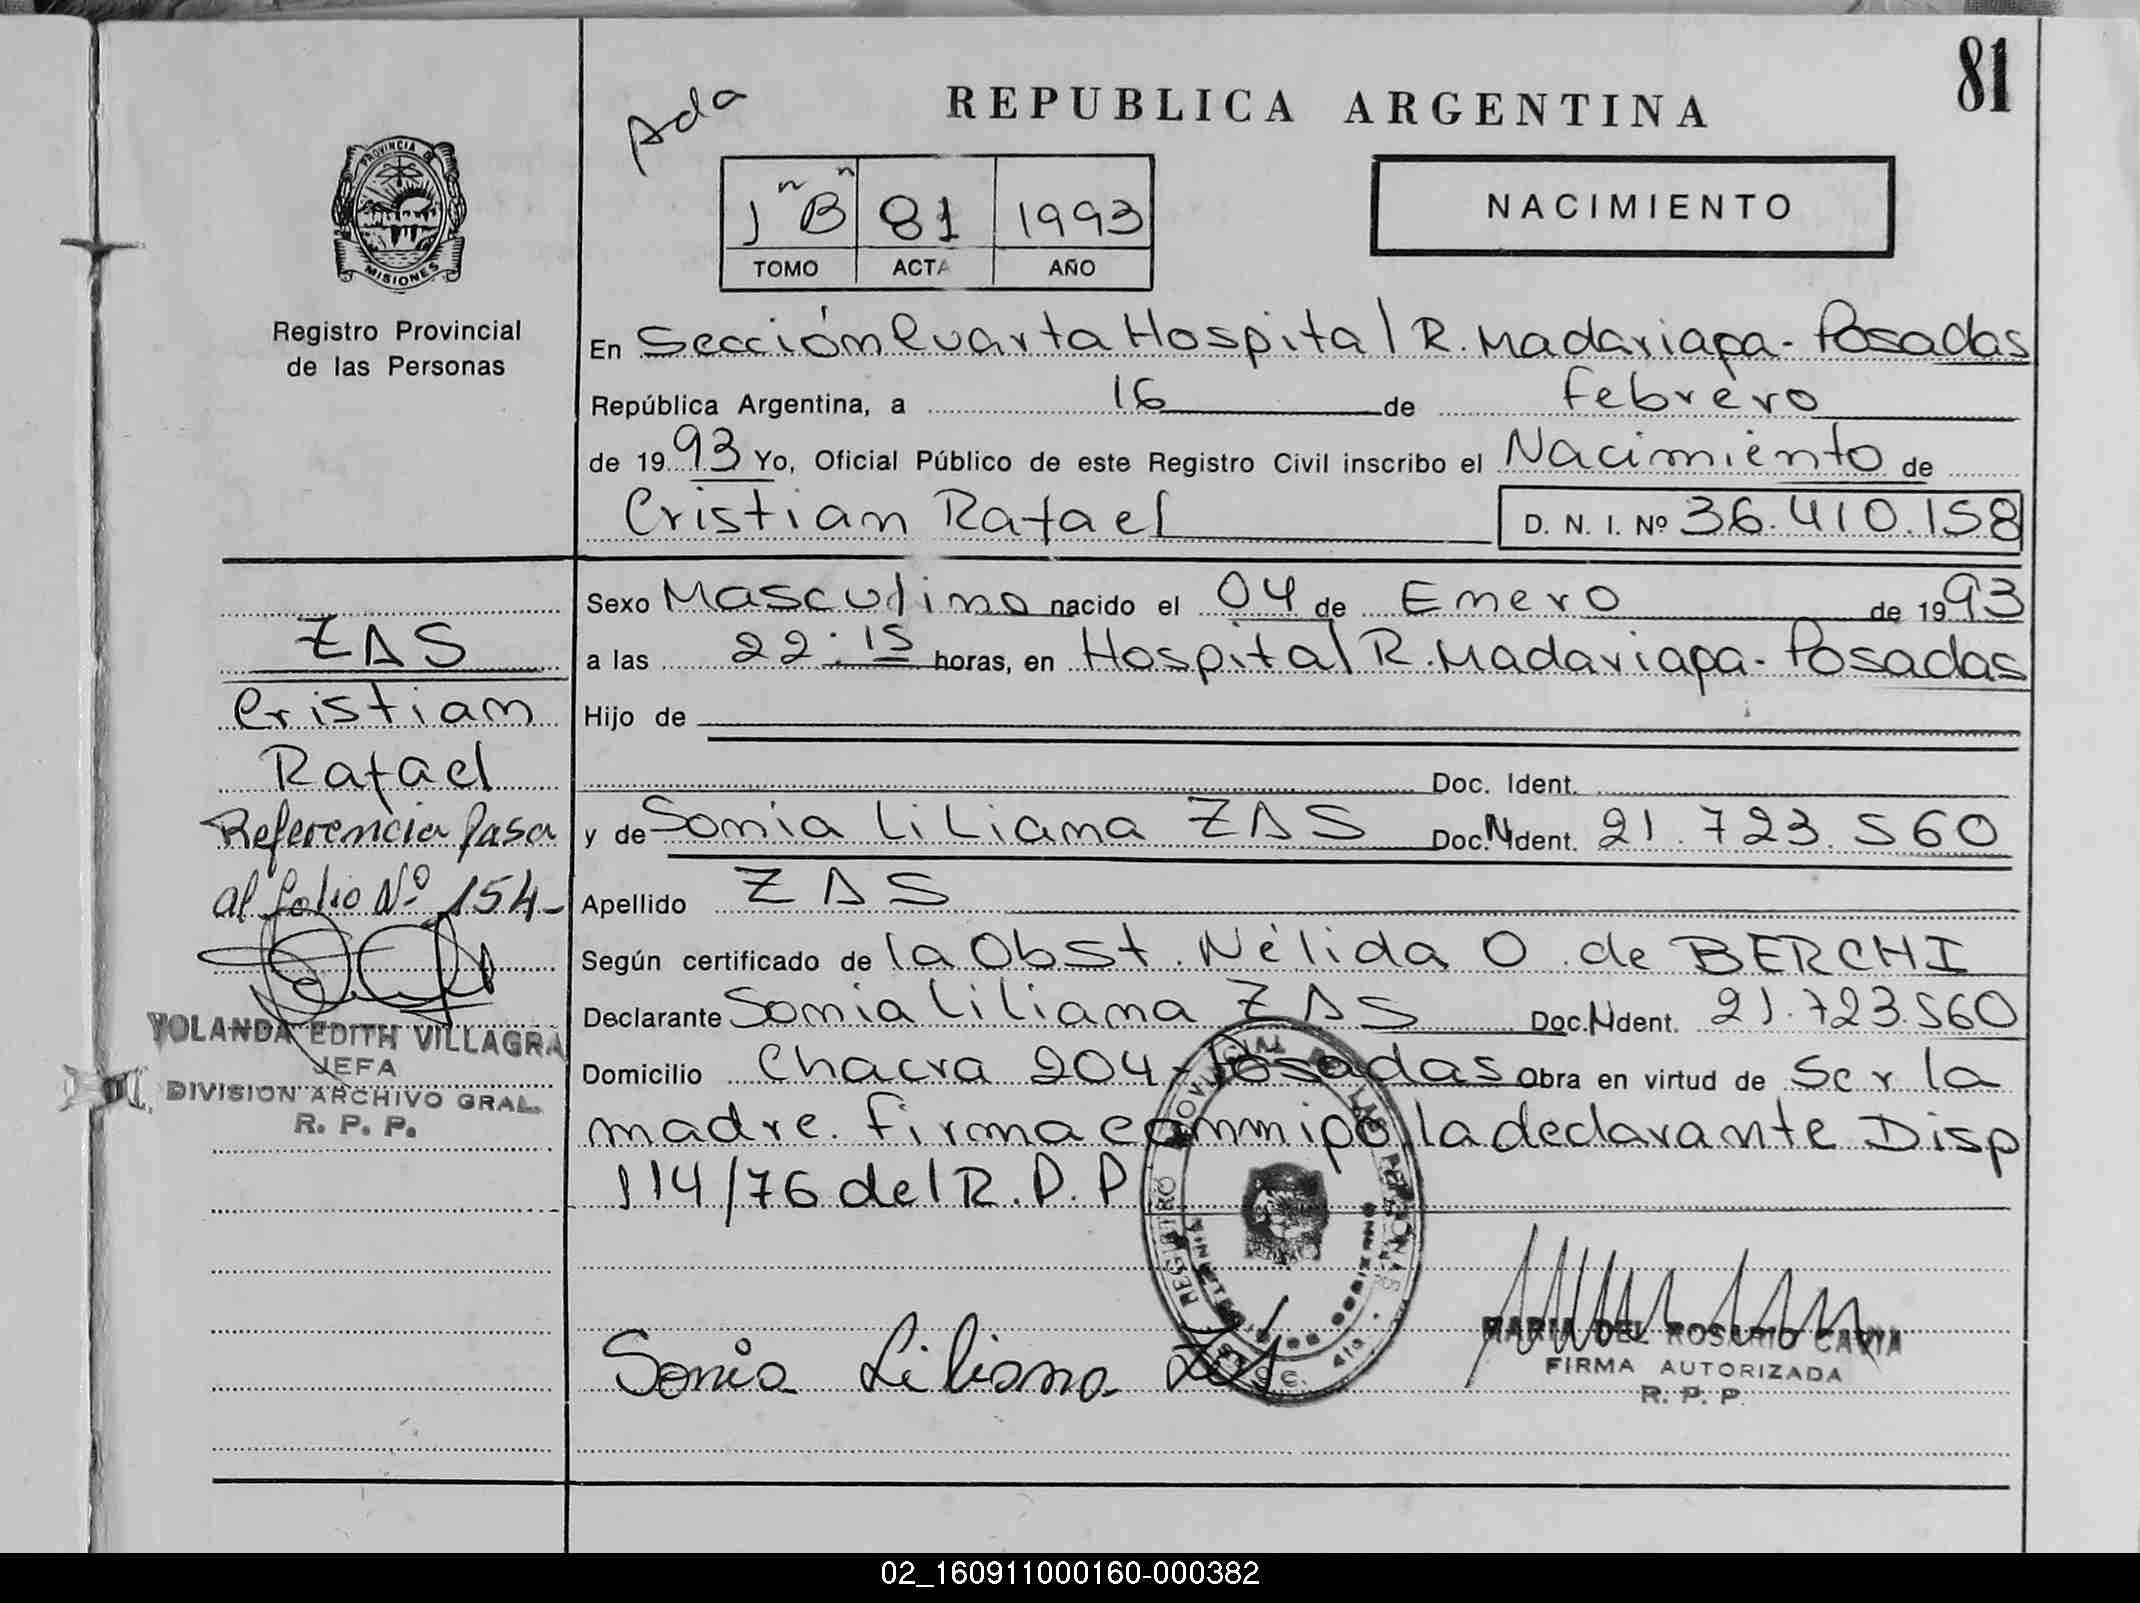 81
Ada
REPUBLICA ARGENTINA
PROVINCIA DE
MISIONES
Registro Provincial
de las Personas
1 "B" 81 1993
TOMO ACTA AÑO
NACIMIENTO
En Sección Cuarta Hospital R. Madariaga - Posadas
República Argentina, a 16 de Febrero
de 1993 Yo, Oficial Público de este Registro Civil inscribo el Nacimiento de
Cristian Rafael D. N. I. Nº 36.410.158
Sexo Masculino nacido el 04 de Enero de 1993
a las 22:15 horas, en Hospital R. Madariaga - Posadas
Hijo de
Doc. Ident.
y de Sonia Liliana ZAS Doc.N Ident. 21.723.560
Apellido ZAS
Según certificado de la Obst. Nélida O. de BERCHI
Declarante Sonia Liliana ZAS Doc.N Ident. 21.723.560
Domicilio Chacra 204 - Posadas Obra en virtud de Ser la
madre. Firma conmigo la declarante Disp
114/76 del R.P.P
Sonia Liliana Zas
MARIA DEL ROSARIO CAVIA
FIRMA AUTORIZADA
R. P. P.
ZAS
Cristian
Rafael
Referencia pasa
al folio Nº 154-
YOLANDA EDITH VILLAGRA
JEFA
DIVISION ARCHIVO GRAL.
R. P. P.
REGISTRO PROVINCIAL DE LAS PERSONAS
02_160911000160-000382